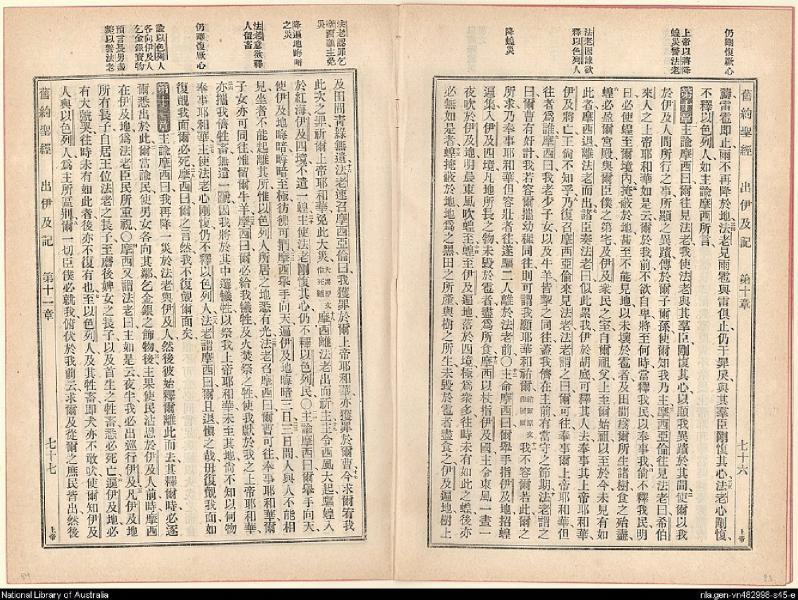 仍剛愎厥心
上帝以將降
蝗災警法老
法老因諫欲
釋以色列人
降蝗災
舊約聖經 出伊及記 第十章 七十六 上帝
禱雷雹即止雨不再降於地法老見雨雹與雷俱止仍干罪戾與其羣臣剛愎其心法老心剛愎
不釋以色列人如主諭摩西所言
第十章主諭摩西曰爾往見法老我使法老與其羣臣剛愎其心以顯我異蹟於其間使爾以我
於伊及人間所行之事所顯之異蹟傳於爾子爾孫使爾知我乃主摩西亞倫往見法老曰希伯
來人之上帝耶和華如是云爾於我前不欲自卑將至何時當釋我民以奉事我倘不釋我民明
日必使蝗至爾境內掩蔽於地甚至不能見地以未壞於雹者及田間爲爾所生諸樹食之殆盡
蝗必盈爾宮殿與爾臣僕之第宅及伊及衆民之室自爾祖父上至爾始祖以至於今未見有如
此者摩西退離法老而出諸臣奏法老曰似此累我伊於胡底可釋其人去奉事其主耶和華
伊及將亡王尙不知乎乃復召摩西亞倫來見法老法老謂之曰爾可往奉事爾上帝耶和華但
往者爲誰摩西曰我老少子女以及牛羊皆挈之同往蓋我儕在主前有當守之節期法老謂之
曰爾曹有好計我若容爾攜幼穉同往則可謂我願耶和華祐爾 我不容爾若此爾之
所求乃奉事耶和華但容壯者往遂驅二人離於法老前〇主命摩西曰爾舉手指伊及地招蝗
遍集入伊及四境凡地所長之物未毀於雹者盡爲所食摩西以杖指伊及國主令東風一晝一
夜吹於伊及地和晨東風吹蝗至蝗至伊及遍地落於四境極爲衆多往時未有如此之蝗後亦
必無如是者蝗掩蔽於地地爲之黑田之所產與樹之所生未毀於雹者盡食之伊及遍地樹上
法老認罪乞
摩西禱主免
災
降遍地晦暗
之災
法老意欲釋
人留畜
仍剛愎厥心
諭以色列人
各向伊及人
乞金銀寶物
預言長男盡
斃以警法老
及田間靑綠無遺法老速召摩西亞倫曰我獲罪於爾上帝耶和華亦獲罪於爾曹今求爾宥我
此次之罪祈爾上帝耶和華免此大災 摩西離法老出而祈主主令西風大起驅蝗入
於紅海伊及四境不遺一蝗主使法老剛愎其心仍不釋以色列民〇主諭摩西曰爾舉手向天
使伊及地晦暗晦暗至極彷彿可捫摩西舉手向天遍伊及地晦暗三日三日間人與人不能相
見坐者不能起離其所惟以色列人所居之地悉有光法老召摩西曰爾曹可往奉事耶和華爾
子女亦可同往惟留爾牛羊摩西曰爾必給我犧牲及火焚祭之牲使我獻於我上帝耶和華
亦攜我儕牲畜無遺一蹄因我將於其中選犧牲以祭我上帝耶和華未至其地尙不知以何物
奉事耶和華主使法老心剛愎仍不釋以色列人法老謂摩西曰爾且退愼之哉毋復覿我面如
復覿我面爾必死摩西曰爾之言然我不復覿爾面矣
第十一章主諭摩西曰我再降一災於法老與伊及人然後彼始釋爾離此而去其釋爾時必逐
爾悉出於此爾當諭民使男女各向其鄰乞金銀之飾物後主果使民沾恩於伊及人前時摩西
在伊及地爲法老臣民所重視〇摩西又謂法老曰主如是云夜半我必出巡行伊及凡伊及地
所有長子自居王位法老之長子至磨後婢女之長子以及首生之牲畜悉必死亡遍伊及地必
有大號哭往時未有如此者後亦不復有也至以色列人及其牲畜即犬亦不敢吠使爾知伊及
人與以色列人爲主所區別爾一切臣僕必就我俯伏於我前云求爾及從爾之庶民皆出然後
舊約聖經 出伊及記 第十一章 七十七 上帝
National Library of Australia
nla.gen-vn482998-s45-e